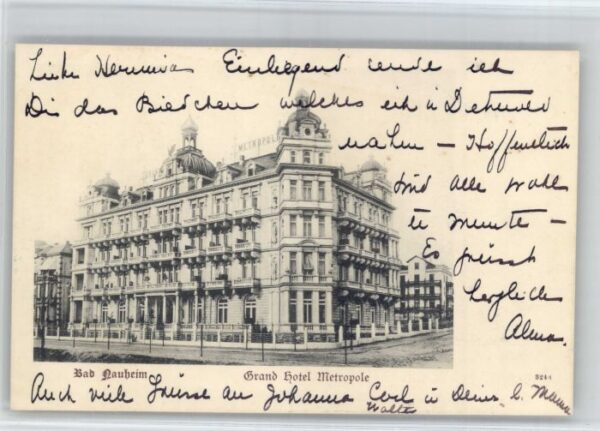 Liebe Hermina Einliegend sende ich
Dir das Bildchen welches ich u Detmold
nahm — Hoffentlich
sind alle wohl
te munter —
Es grüsst
herzlichst
Alma.
METROPOLE
Bad Nauheim Grand Hotel Metropole
Auch viele Grüsse an Johanna Carl u Deine l. Mama
Walter